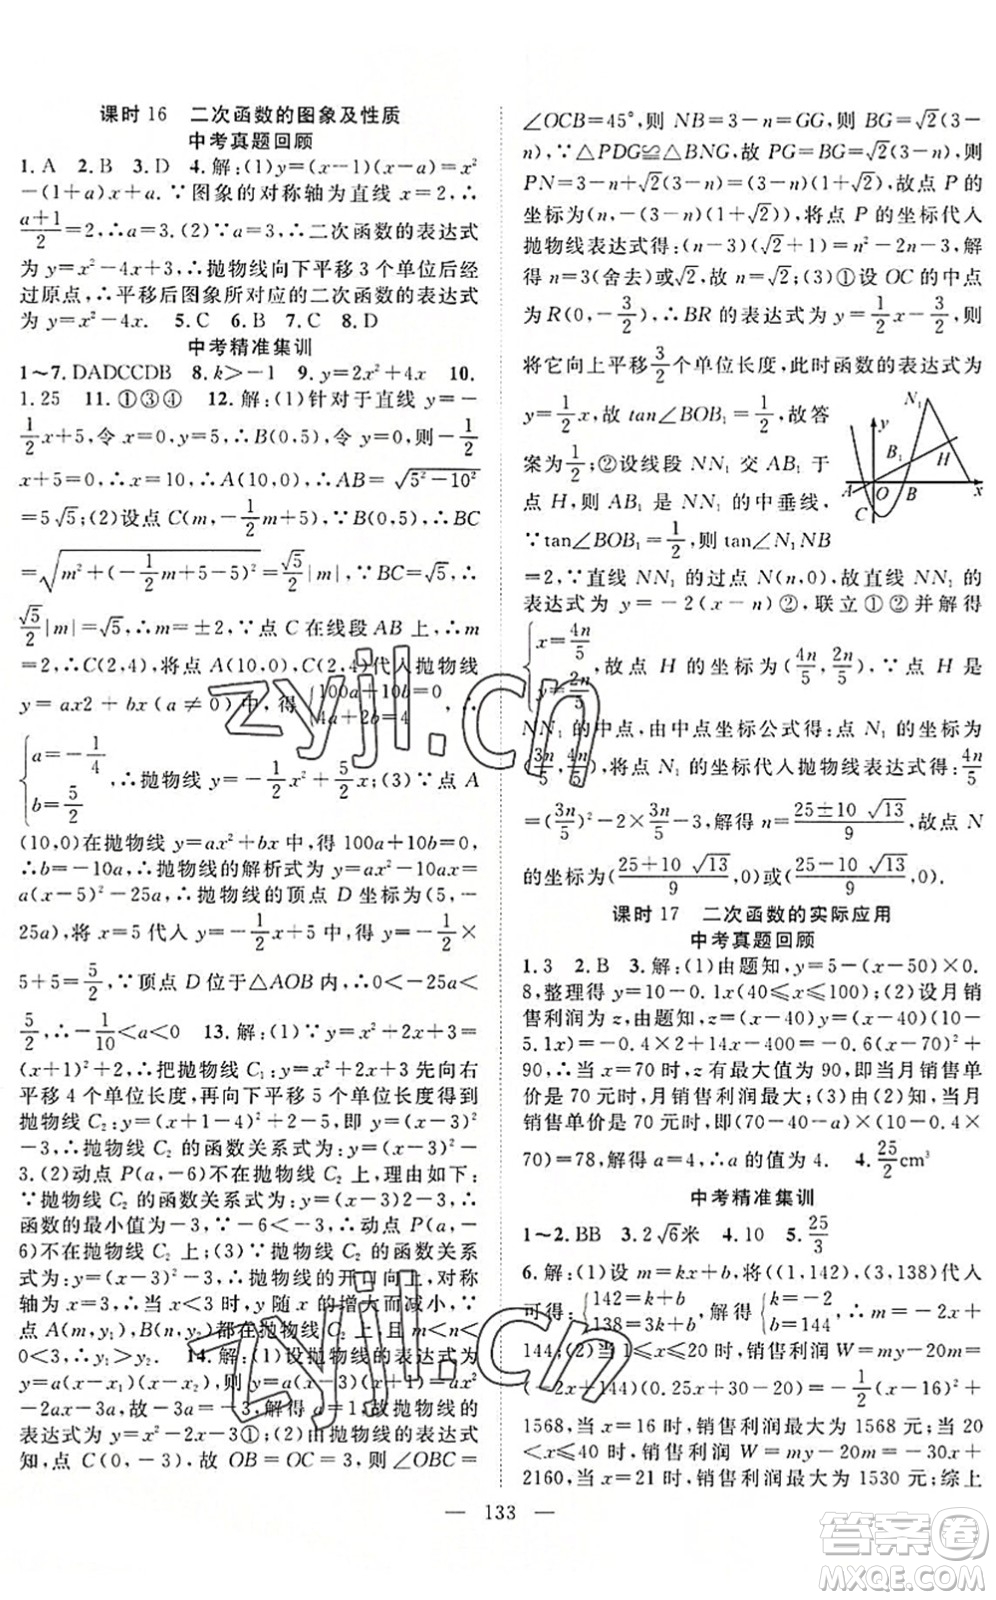 课时 16　二次函数的图象及性质
中考真题回顾
1. A　2. B　3. D　4. 解:(1)y=(x-1)(x-a)=x²
-(1+a)x+a.∵图象的对称轴为直线 x=2,∴
(a+1)/2=2,∴a=3.(2)∵a=3,∴二次函数的表达式
为 y=x²-4x+3,∴抛物线向下平移 3 个单位后经
过原点,∴平移后图象所对应的二次函数的表达式
为 y=x²-4x.　5. C　6. B　7. C　8. D
中考精准集训
1~7. DADCCDB　8. k>-1　9. y=2x²+4x　10.
1.25　11. ①③④　12. 解:(1)针对于直线 y=-
1/2 x+5,令 x=0,y=5,∴B(0,5),令 y=0,则-1/2
x+5=0,∴x=10,∴A(10,0),∴AB=√(5²-10²)
=5√5;(2)设点 C(m,-1/2 m+5),∵B(0,5),∴BC
=√(m²+(-1/2 m+5-5)²)=√5/2 |m|,∵BC=√5,∴
√5/2 |m|=√5,∴m=±2,∵点 C 在线段 AB 上,∴m
=2,∴C(2,4),将点 A(10,0),C(2,4)代入抛物线
y=ax2+bx(a≠0)中,得{100a+10b=0 4a+2b=4,∴
{a=-1/4 b=5/2,∴抛物线 y=-1/4 x²+5/2 x;(3)∵点 A
(10,0)在抛物线 y=ax²+bx 中,得 100a+10b=0,
∴b=-10a,∴抛物线的解析式为 y=ax²-10ax=
a(x-5)²-25a,∴抛物线的顶点 D 坐标为(5,-
25a),将 x=5 代入 y=-1/2 x+5 中,得 y=-1/2×
5+5=5/2,∵顶点 D 位于△AOB 内,∴0<-25a<
5/2,∴-1/10<a<0　13. 解:(1)∵y=x²+2x+3=
(x+1)²+2,∴把抛物线 C₁:y=x²+2x+3 先向右
平移 4 个单位长度,再向下平移 5 个单位长度得到
抛物线 C₂:y=(x+1-4)²+2-5=(x-3)²
-3,∴抛物线 C₂ 的函数关系式为:y=(x-3)²-
3.(2)动点 P(a,-6)不在抛物线 C₂ 上,理由如下:
∵抛物线 C₂ 的函数关系式为:y=(x-3)²-3,∴
函数的最小值为-3,∵-6<-3,∴动点 P(a,-
6)不在抛物线 C₂ 上;(3)∵抛物线 C₂ 的函数关系
式为:y=(x-3)²-3,∴抛物线的开口向上,对称
轴为 x=3,∴当 x<3 时,y 随 x 的增大而减小,∵
点 A(m,y₁),B(n,y₂)都在抛物线 C₂ 上,且 m<n<
0<3,∴y₁>y₂.　14. 解:(1)设抛物线的表达式为
y=a(x-x₁)(x-x₂),则 y=a(x+1)(x-3)=ax²
-2ax-3a,故-3a=-3,解得 a=1,故抛物线的
表达式为 y=x²-2x-3①;(2)由抛物线的表达式
知,点 C(0,-3),故 OB=OC=3,则∠OBC=
∠OCB=45°,则 NB=3-n=GG,则 BG=√2(3-
n),∵△PDG≌△BNG,故 PG=BG=√2(3-n),则
PN=3-n+√2(3-n)=(√2+1)(3-n),故点 P 的
坐标为(n,-(3-n)(√2+1)),将点 P 的坐标代入
抛物线表达式得:(n-3)(√2+1)=n²-2n-3,解
得 n=3(舍去)或√2,故 n=√2;(3)①设 OC 的中点
为 R(0,-3/2),∴BR 的表达式为 y=1/2 x-3/2,则
将它向上平移3/2个单位长度,此时函数的表达式为
y=1/2 x,故 tan∠BOB₁=1/2,故答
案为1/2;②设线段 NN₁ 交 AB₁ 于
点 H,则 AB₁ 是 NN₁ 的中垂线,
∵tan∠BOB₁=1/2,则 tan∠N₁NB
=2,∵直线 NN₁ 的过点 N(n,0),故直线 NN₁ 的
表达式为 y=-2(x-n)②,联立①②并解得
{x=4n/5 y=2n/5,故点 H 的坐标为(4n/5,2n/5),∵点 H 是
NN₁ 的中点,由中点坐标公式得:点 N₁ 的坐标为
(3n/5,4n/5),将点 N₁ 的坐标代入抛物线表达式得:4n/5
=(3n/5)²-2×3n/5-3,解得 n=(25±10√13)/9,故点 N
的坐标为((25+10√13)/9,0)或((25-10√13)/9,0).
N₁
y
B₁
H
A
O
B
x
C
课时 17　二次函数的实际应用
中考真题回顾
1. 3　2. B　3. 解:(1)由题知,y=5-(x-50)×0.
8,整理得 y=10-0.1x(40≤x≤100);(2)设月销
售利润为 z,由题知,z=(x-40)y=(x-40)(10-
5.1x)=-0.4×2+14x-400=-0.6(x-70)²+
90,∴当 x=70 时,z 有最大值为 90,即当月销售单
价是 70 元时,月销售利润最大;(3)由(2)知,当月
销售单价是 70 元时,即(70-40-a)×(10-0.4×
70)=78,解得 a=4,∴a 的值为 4.　4. 25/2 cm³
中考精准集训
1~2. BB　3. 2√6米　4. 10　5. 25/3
6. 解:(1)设 m=kx+b,将((1,142),(3,138)代入
可得:{142=k+b 138=3k+b,解得{k=-2 b=144,∴m=-2x+
144;(2)当 1≤x≤20 时,销售利润 W=my-20m=
(-2x+144)(0.25x+30-20)=-1/2(x-16)²+
1568,当 x=16 时,销售利润最大为 1568 元;当 20
<x≤30 时,销售利润 W=my-20m=-30x+
2160,当 x=21 时,销售利润最大为 1530 元;综上
— 133 —
zyjl.cn
zyjl.cn
答案圈
MXQE.COM